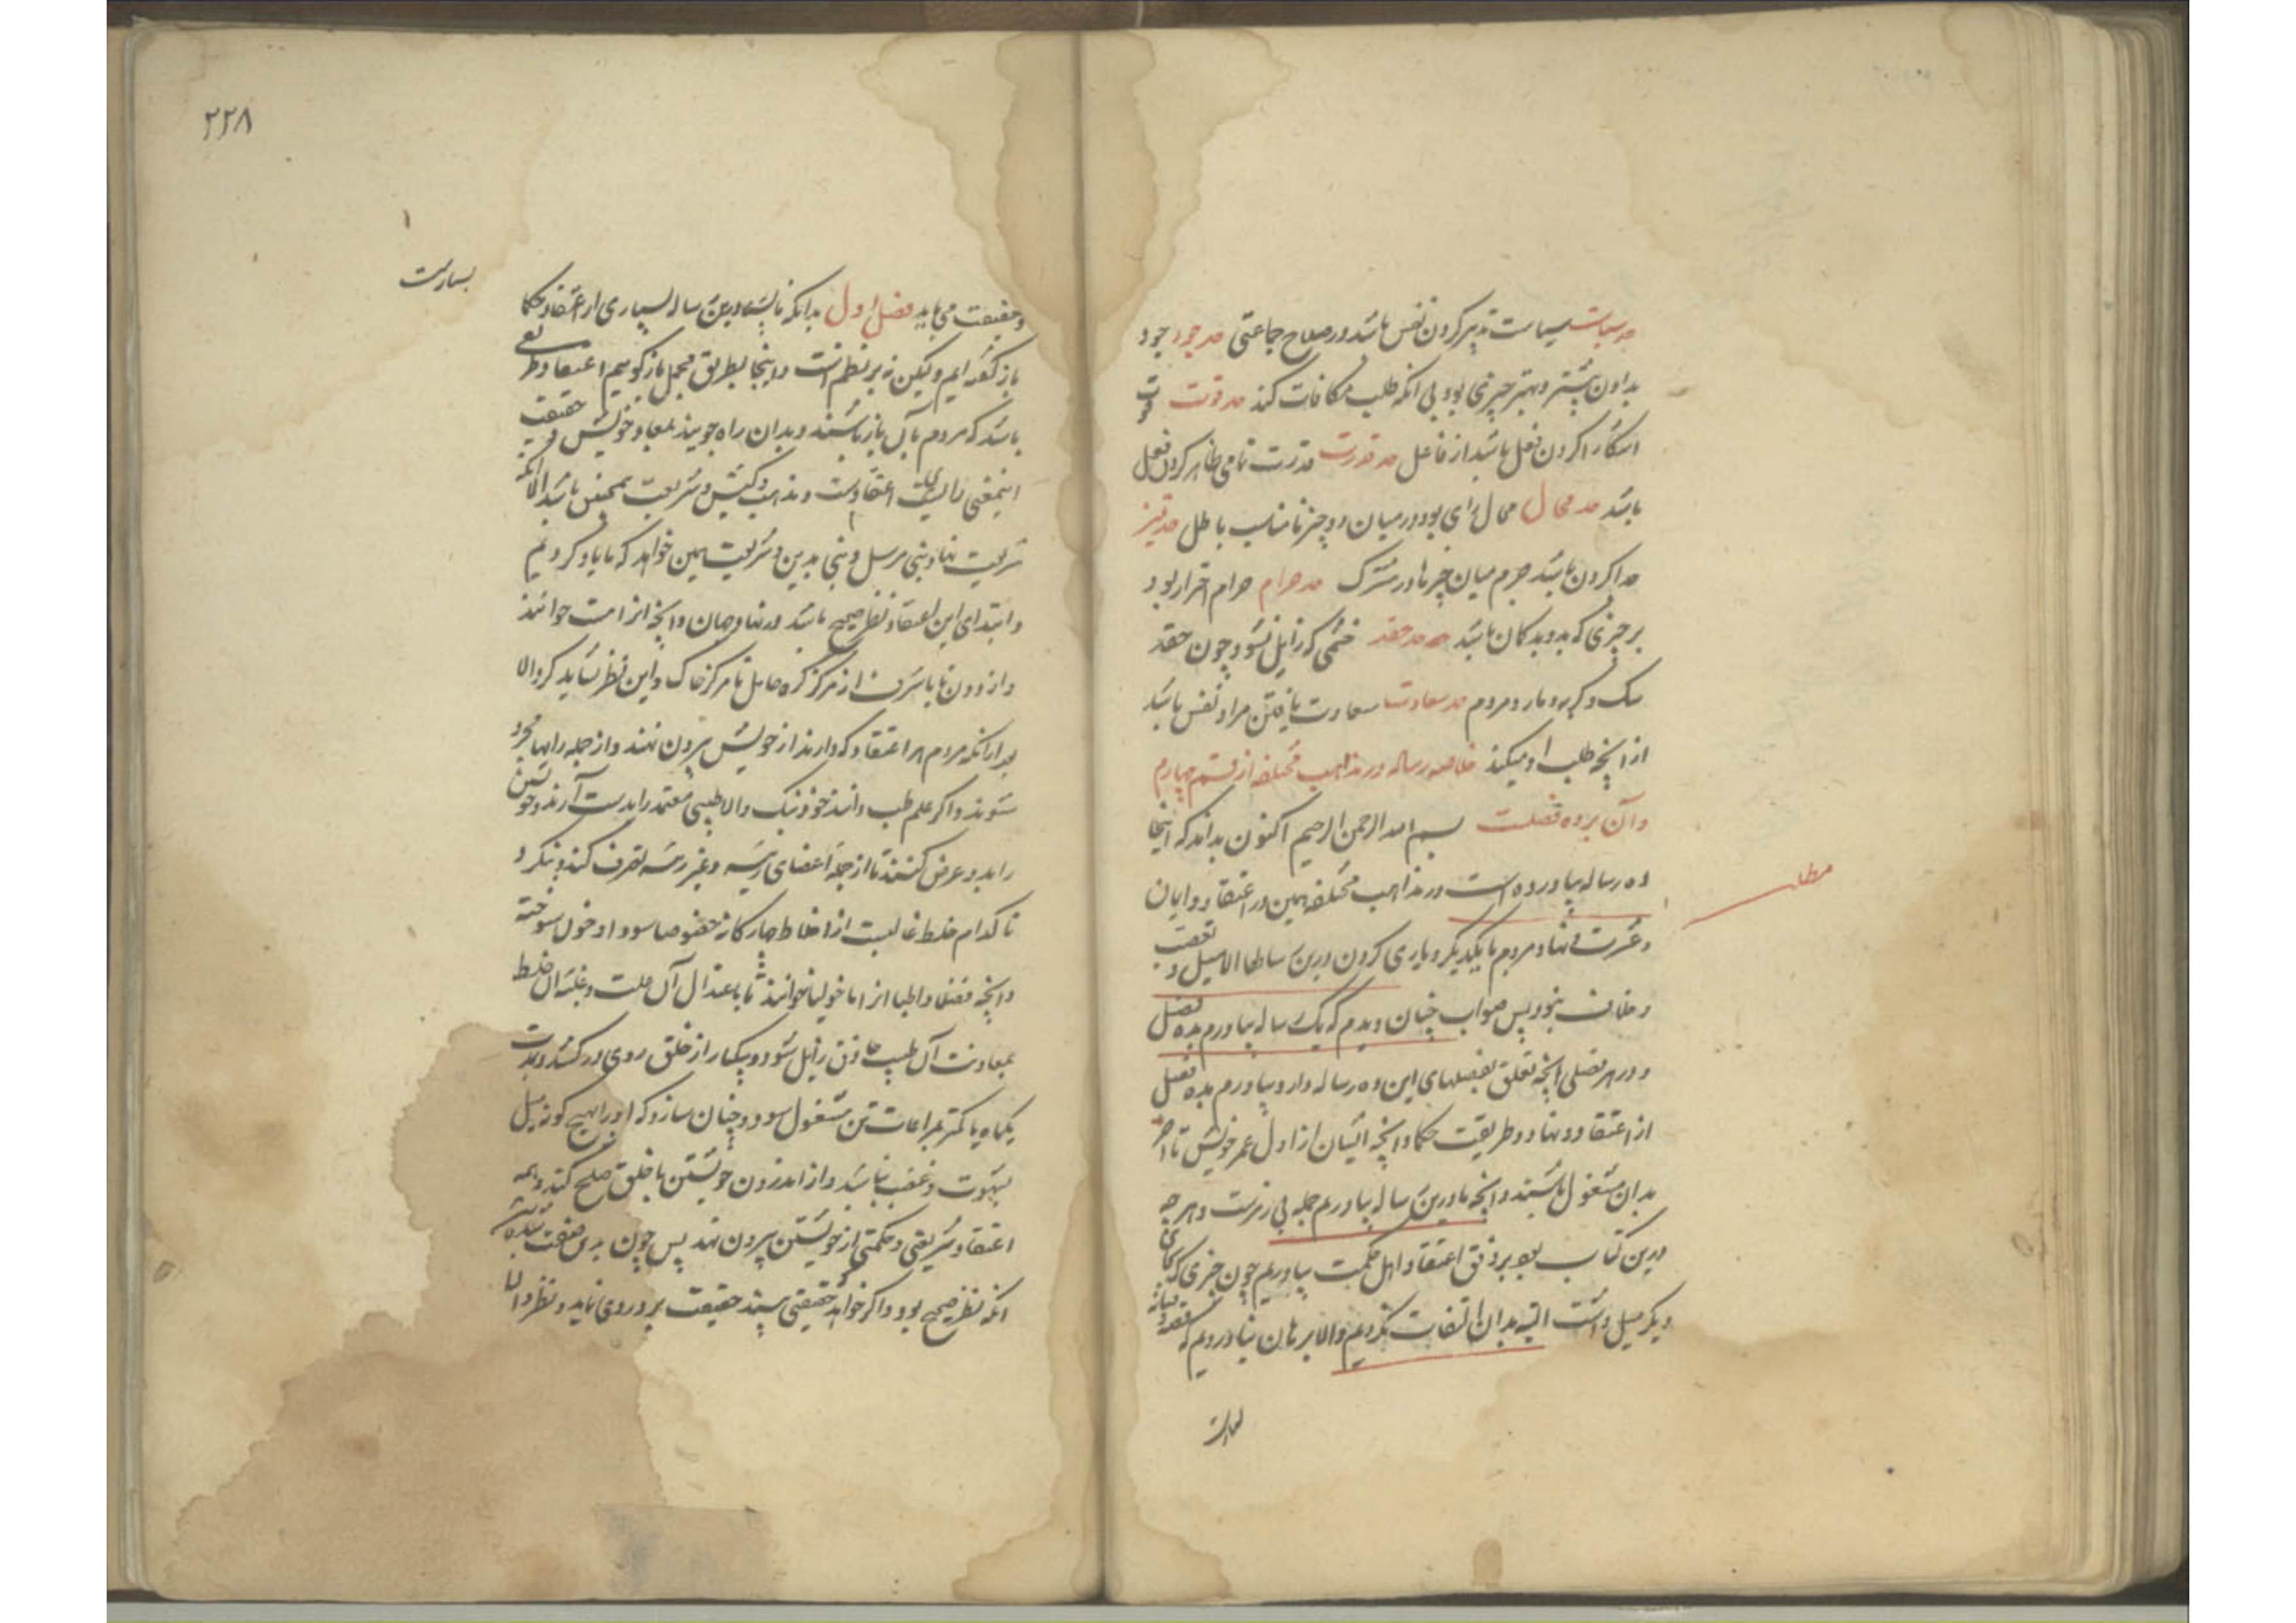 حد سیاست سیاست تدبیر کردن نفس باشد در صلاح جماعتی حد جود جود
بدادن بیشتر و بهتر چیزی بود بی آنکه طلب مکافات کند حد قوت قوت
آشکارا کردن فعل باشد از فاعل حد قدرت قدرت تمامی ظاهر کردن فعل
باشد حد محال محال رای بود در میان دو چیز نامناسب باطل حد تمیز
جدا کردن باشد جرم میان چیزها در مشترک حد حرام حرام احتراز بود
بر چیزی که بدو بد کمان باشد حد حقد خشمی که زایل نشود چون حقد
سک و کربه و مار و مردم حد سعادت سعادت یافتن مراد نفس باشد
از آنچه طلب او میکند خلاصه رساله در مذاهب مختلفه از قسم چهارم
و آن بر ده فصلست بسم الله الرحمن الرحیم اکنون بداند که اینجا
ده رساله بیاورده است در مذاهب مختلفه همین در اعتقاد و ایمان
و عشرت نهاد مردم با یکدیکر و یاری کردن درین تعصب
و خلاف نبود پس صواب چنان دیدم که یک رساله بیاورم بده فصل
و در هر فصلی آنچه تعلق بفصلهای این ده رساله دارد بیاورم بده فصل
از اعتقاد و نهاد و طریقت حکما و آنچه ایشان از اول عمر خویش تا آخر
بدان مشغول باشند و آنچه ما درین رساله بیاوریم جمله بی رمزست و هر چه
درین کتاب بود بر وفق اعتقاد اهل حکمت بیاوریم چون چیزی که بجای
دیکر میل داشت البته بدان التفات نکردیم و الا برهان نیاوردیم که مقصود
مطلب
۲۲۸
و حقیقت می باید فصل اول بدانکه ما پیش درین رساله بسیاری از اعتقاد حکما
باز کفته ایم ولیکن نه بر نظم است و اینجا بطریق مجمل باز کوییم اعتقاد طریقی
باشد که مردم بآن باز باشند و بدان راه جویند بمعاد خویش و حقیقت
اینمعنی رای اعتقادست و مذهب و کیش و شریعت همچنین باشد الا آنکه
شریعت نهاد نبی مرسل و نبی بدین و شریعت همین خواهد که ما یاد کردیم
و ابتدای این اعتقاد نظر صحیح باشد در نهاد جهان و آنچه انرا مت خوانند
و از دون تا با شرف از مرکز کره حامل تا مرکز خاک و این نظر نشاید کرد الا
بعد از آنکه مردم هر اعتقاد که دارند از خویش بیرون نهند و از جمله رایها مجرد
شوند و اکر علم طب دانند خود نیک و الا طبیبی معتمد را بدست آرند و خویشتن
را بدو عرض کنند تا از جمله اعضای رئیسه و غیر رئیسه تصرف کند و بنکرد
تا کدام خلط غالبست از اخلاط چهارکانه خصوصا سودا و خون سوخته
و آنچه فضلا و اطبا انرا ماخولیا خوانند تا باعتدال آن علت و غلبه آن خلط
بمعاونت آن طبیب حاذق زایل شود و یکبار از خلق روی در کشد و مدت
یکماه یا کمتر بمراعات تن مشغول شود و چنان سازد که او را هیچ کونه میل
بشهوت و غضب نباشد و از اندرون خویشتن با خلق صلح کند و همه
اعتقاد شریعتی و حکمتی از خویشتن بیرون نهد پس چون بدین صفت شد
انکه نظر صحیح بود و اکر خواهد حقیقتی بیند حقیقت بر وی روی نماید و نظر